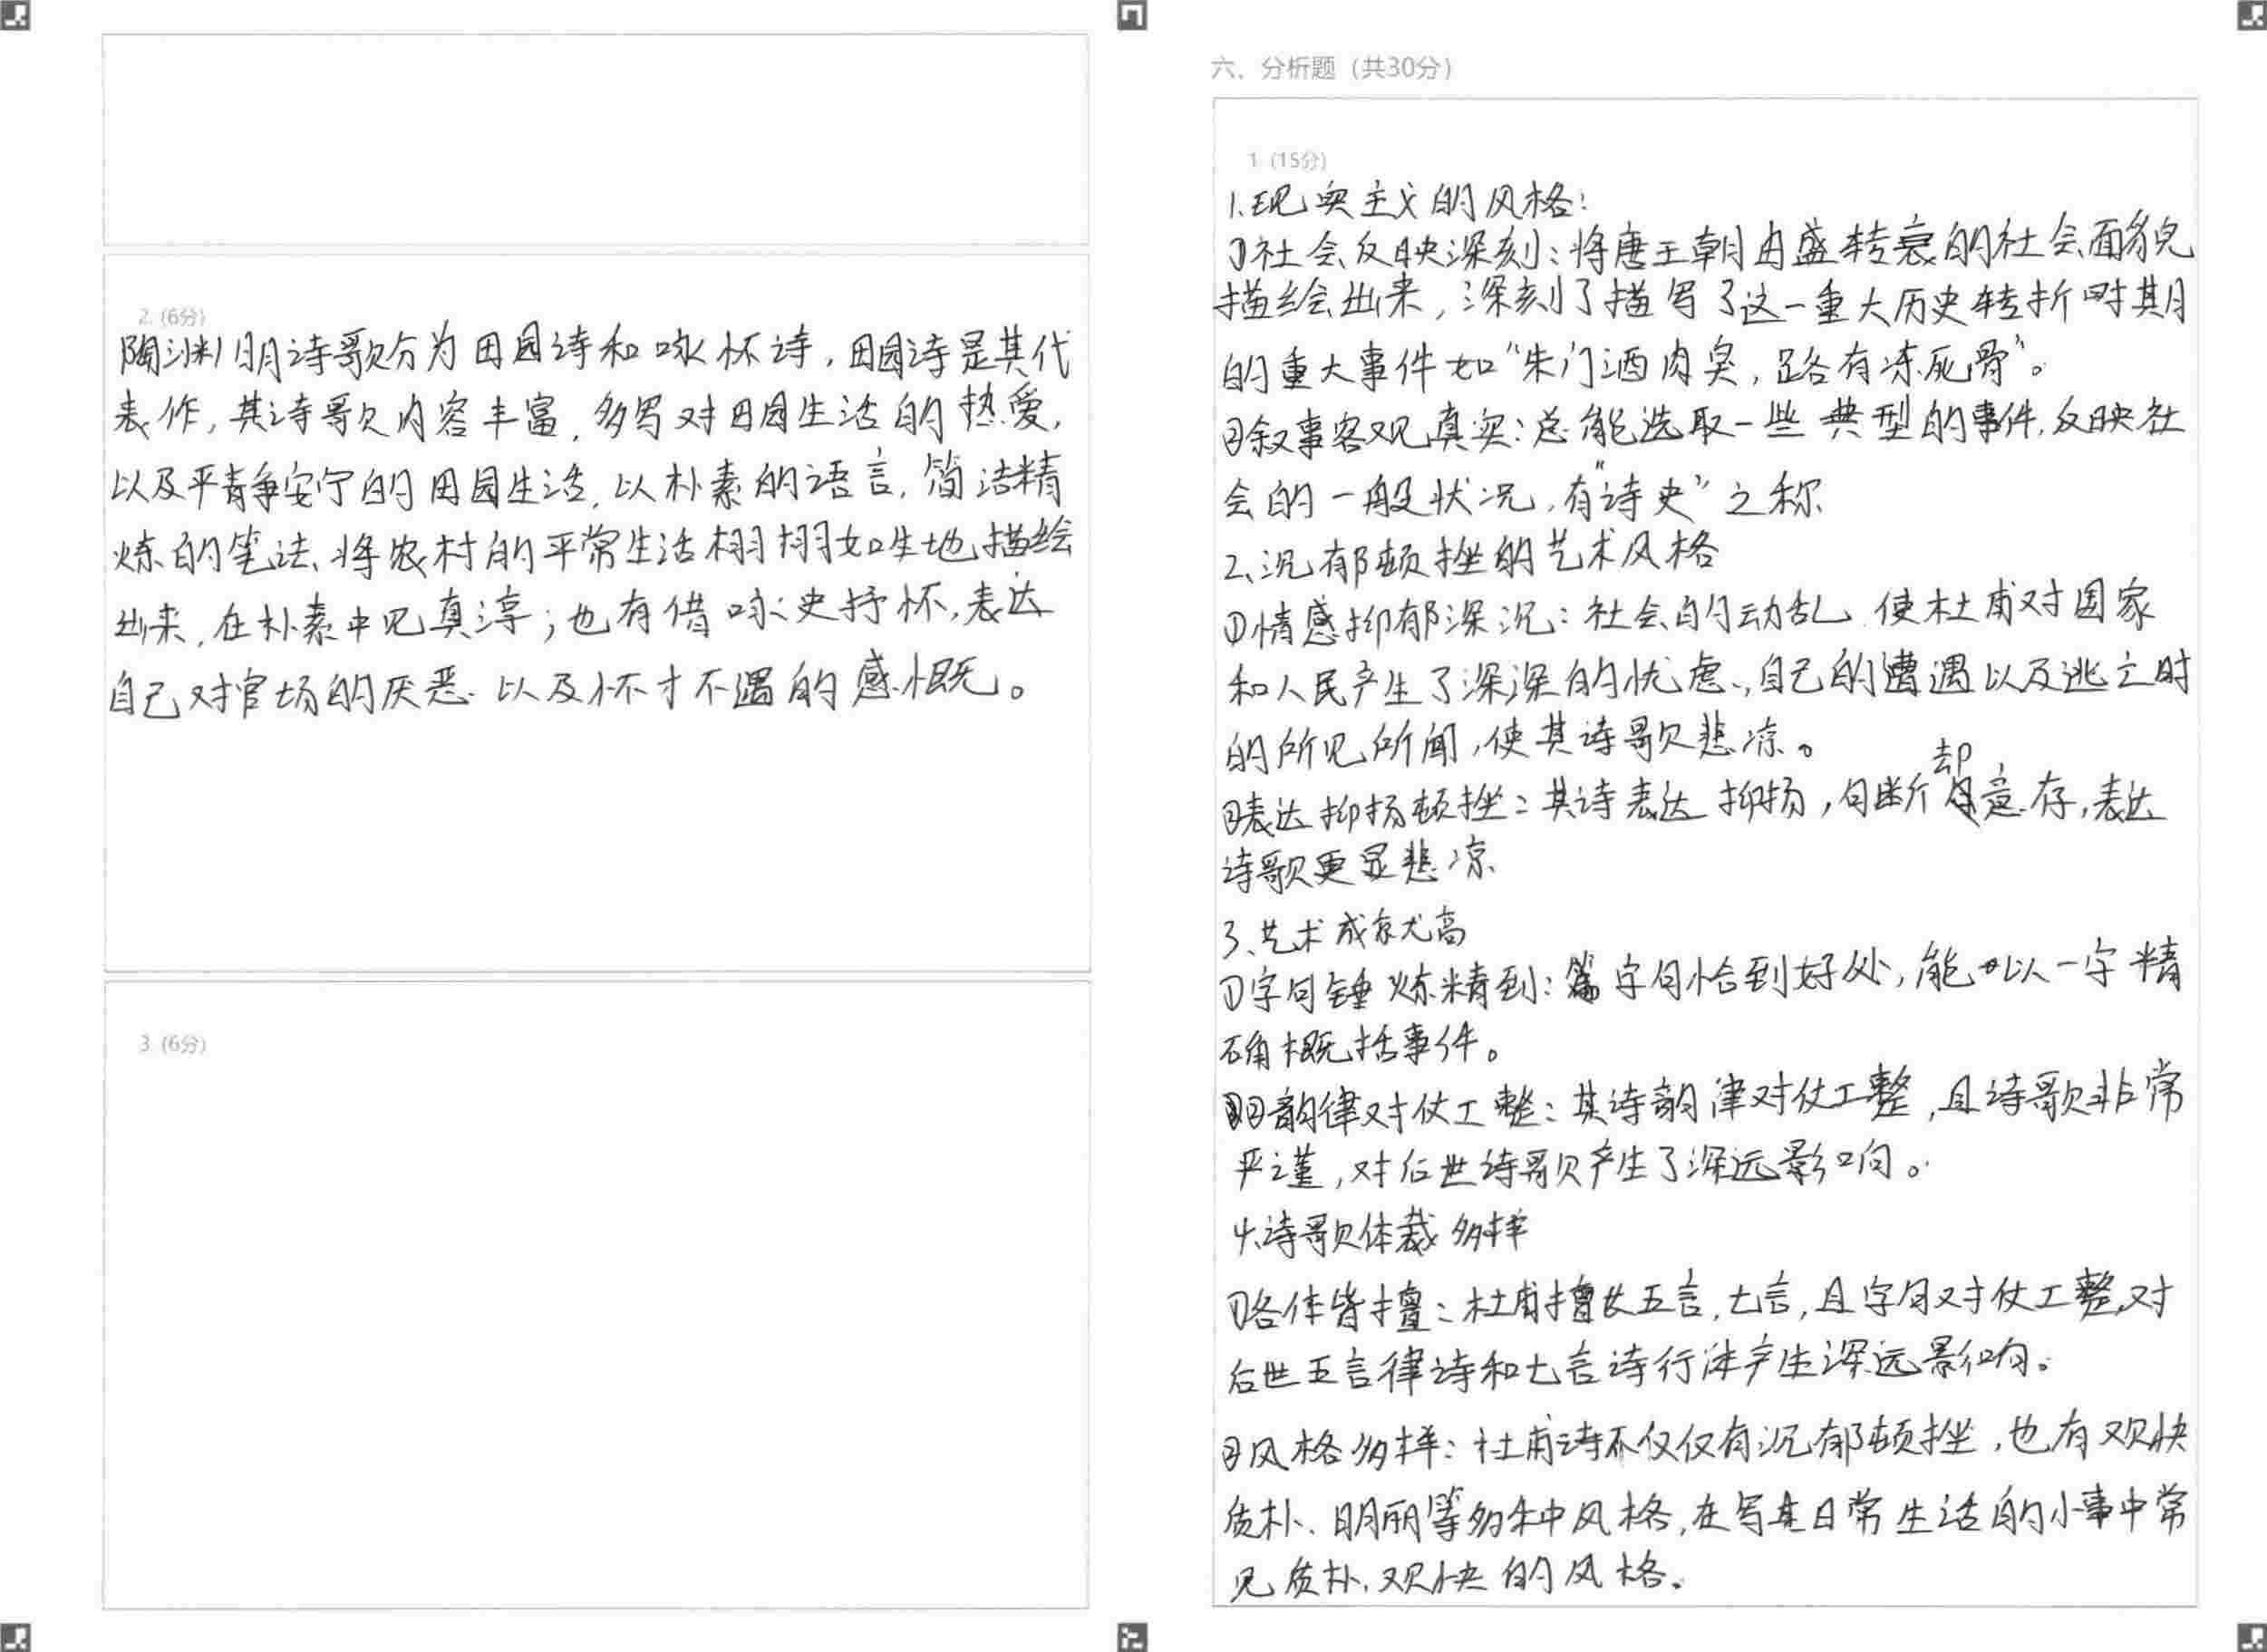 2. (6分)
陶渊明诗歌分为田园诗和咏怀诗，田园诗是其代
表作，其诗歌内容丰富，多写对田园生活的热爱，
以及平静安宁的田园生活，以朴素的语言，简洁精
炼的笔法、将农村的平常生活栩栩如生地描绘
出来，在朴素中见真淳；也有借咏史抒怀，表达
自己对官场的厌恶 以及怀才不遇的感慨。
3. (6分)
六、分析题（共30分）
1. (15分)
1.现实主义的风格：
①社会反映深刻：将唐王朝由盛转衰的社会面貌
描绘出来，深刻了描写了这一重大历史转折时期
的重大事件如“朱门酒肉臭，路有冻死骨”。
②叙事客观真实：总能选取一些典型的事件，反映社
会的一般状况，有“诗史”之称
2、沉郁顿挫的艺术风格
①情感抑郁深沉：社会的动乱 使杜甫对国家
和人民产生了深深的忧虑，自己的遭遇以及逃亡时
的所见所闻，使其诗歌悲凉。
②表达抑扬顿挫：其诗表达抑扬，句断却意存，表达
诗歌更显悲凉
3、艺术成就尤高
①字句锤炼精到：字句恰到好处，能以一字精
确概括事件。
②韵律对仗工整：其诗韵律对仗工整，且诗歌非常
严谨，对后世诗歌产生了深远影响。
4.诗歌体裁多样
①各体皆擅：杜甫擅长五言，七言，且字句对仗工整，对
后世五言律诗和七言诗行体产生深远影响。
②风格多样：杜甫诗不仅仅有沉郁顿挫，也有欢快
质朴、明丽等多种风格，在写生日常生活的小事中常
见质朴、欢快的风格。